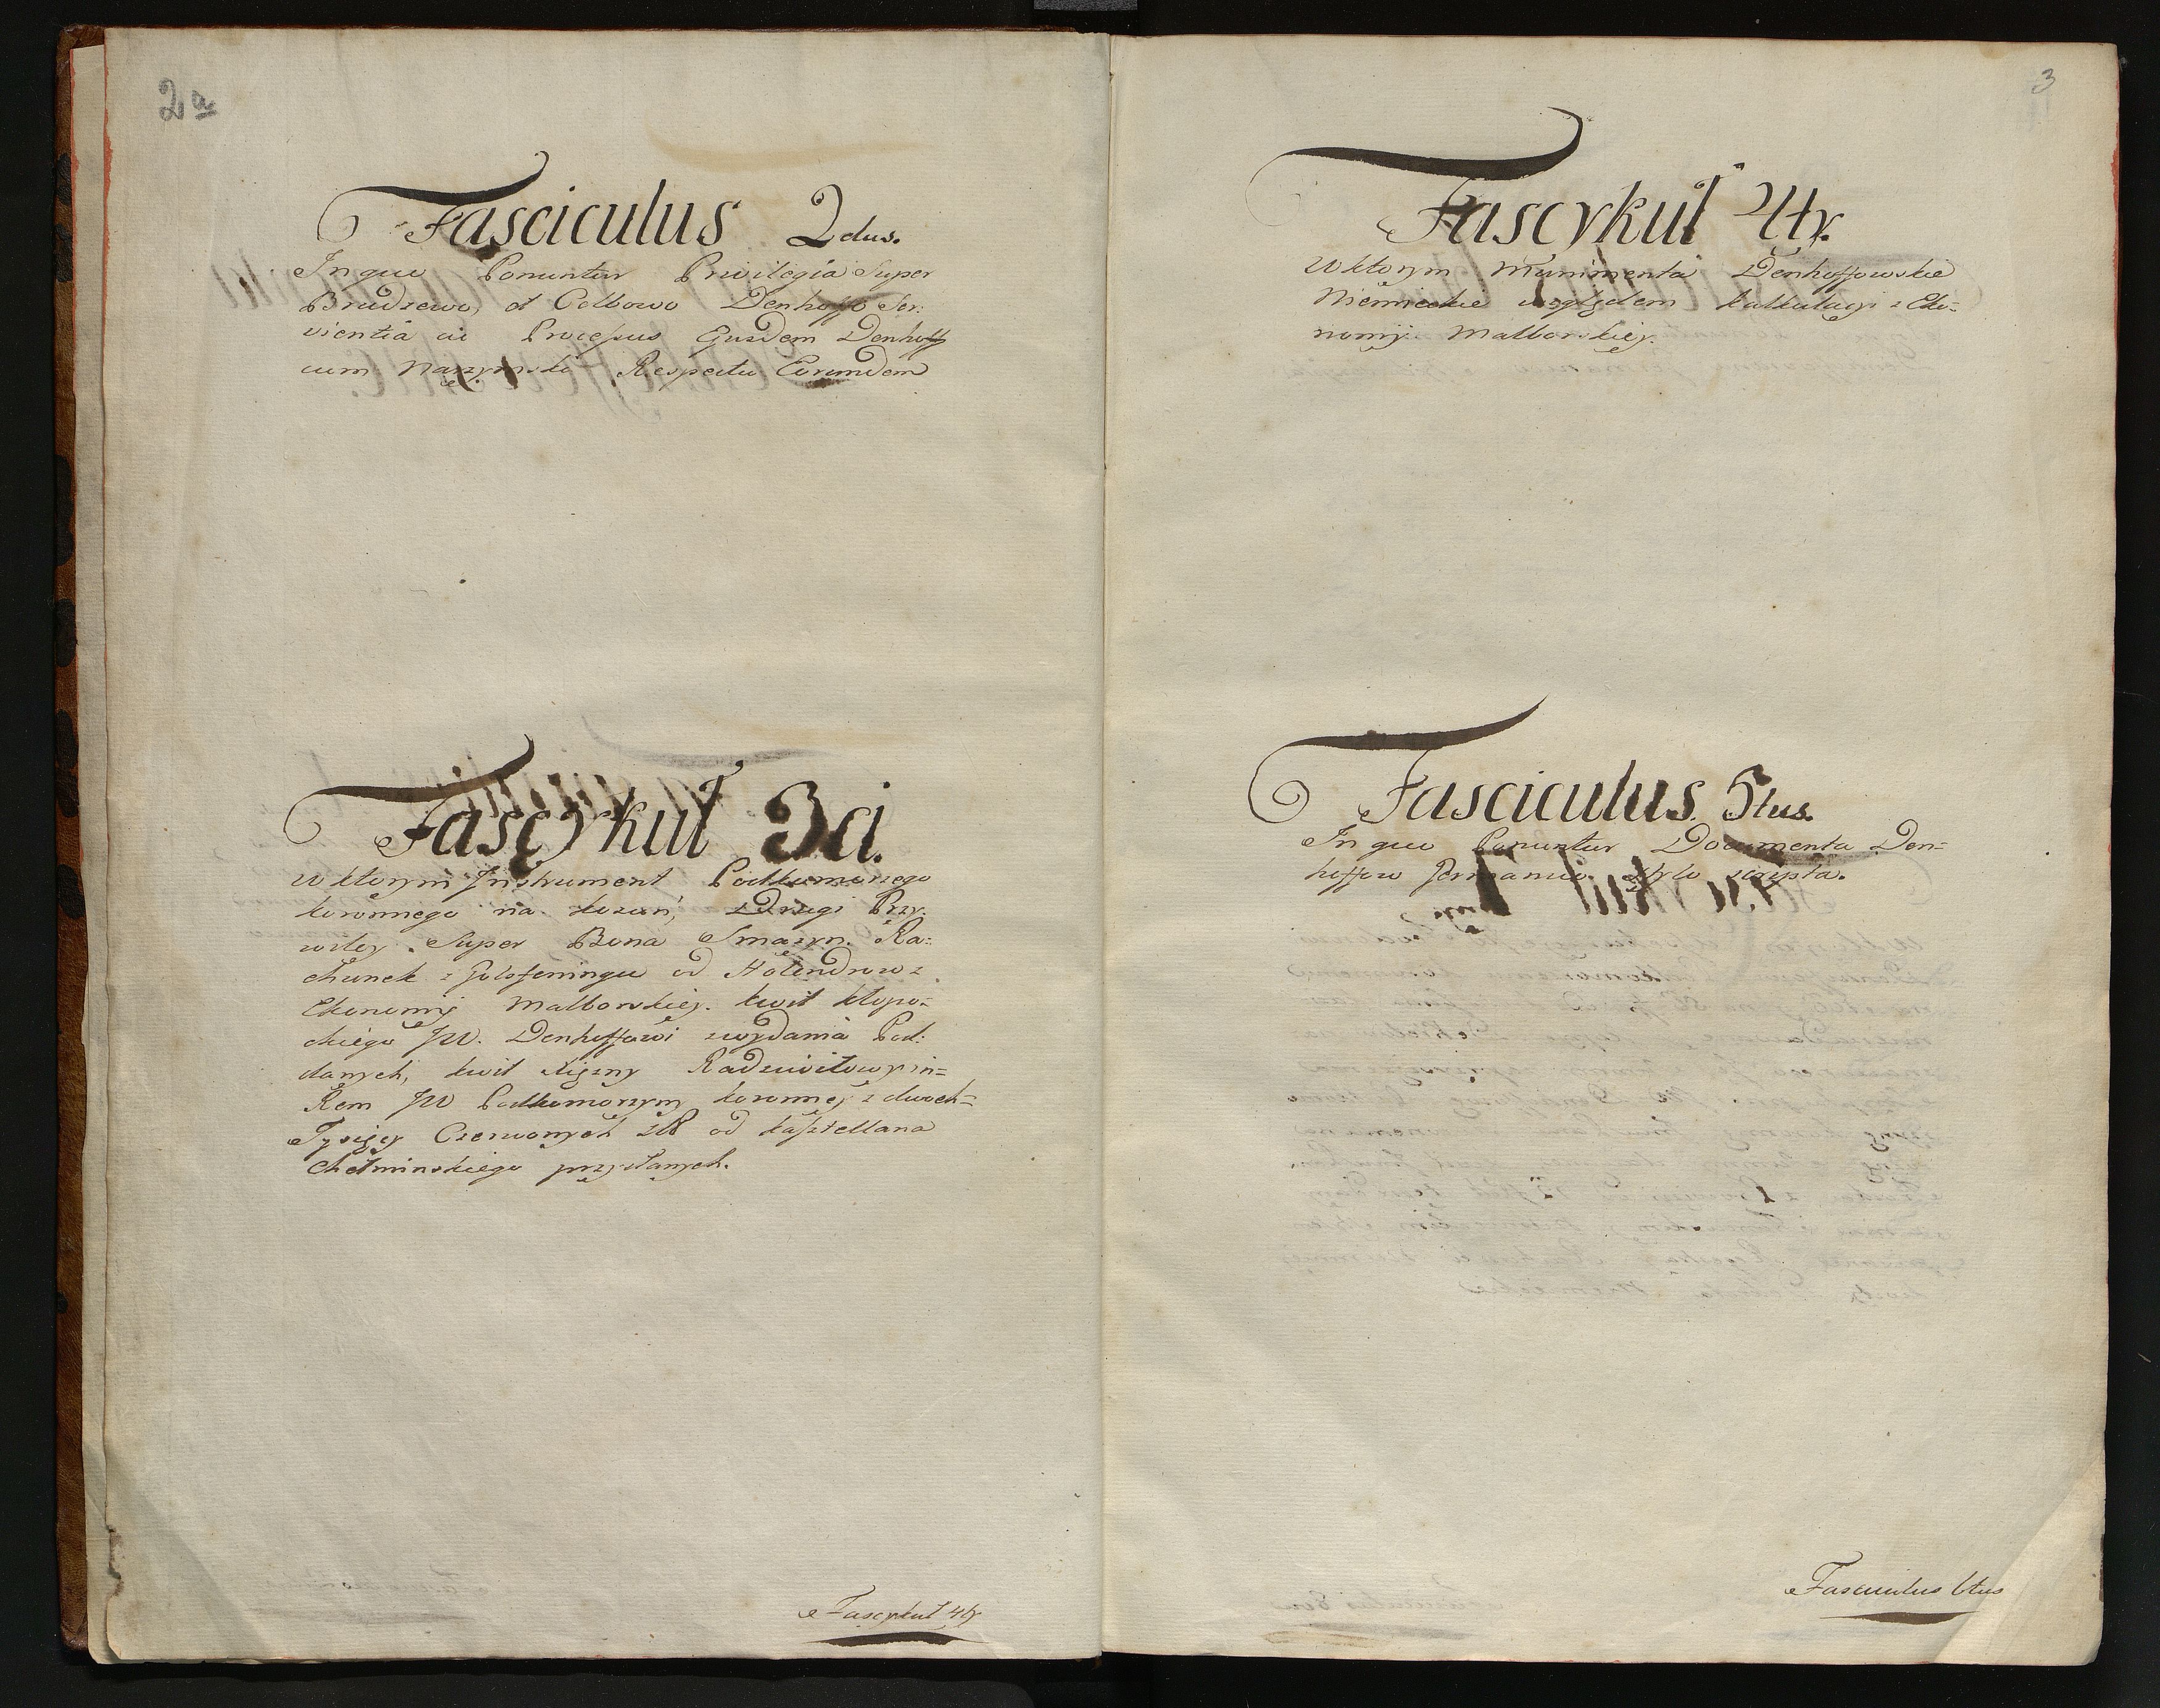 2a
Fasciculus 2dus.
In quo Ponuntur Privilegia Super
Brudzewo, et Celbowo Denhoffo Ser:
vientia ac Processus Ejusdem Denhoff
cum Narzymski Respectu Eorumdem
Fascykuł 3ci.
w ktorym Instrument Podkomorzego
koronnego na Drugi Przy:
wiley Super Bona Smazyn. Ra=
chunek z od Holendrow z
Ekonomij Malborskiey. kwit kłopo=
ckiego JW. Denhoffowi z wydania Pod:
danych, kwit Ręczny Radziwiłowy in=
Rem JW Podkomorzym koronney z dwoch=
Tysięcy Czerwonych Zł od kasztellana
Chełminskiego przysłanych.
Fascykuł 4ty
3
Fascykuł 4ty.
w ktorym Munimenta Denhoffowskie
Niemieckie względem kalkulacyi z Eko=
nomij Malborskiey.
Fasciculus 5tus.
In quo Ponuntur Documenta Den=
hoffow Germanico stylo scripta.
Fasciculus 6tus